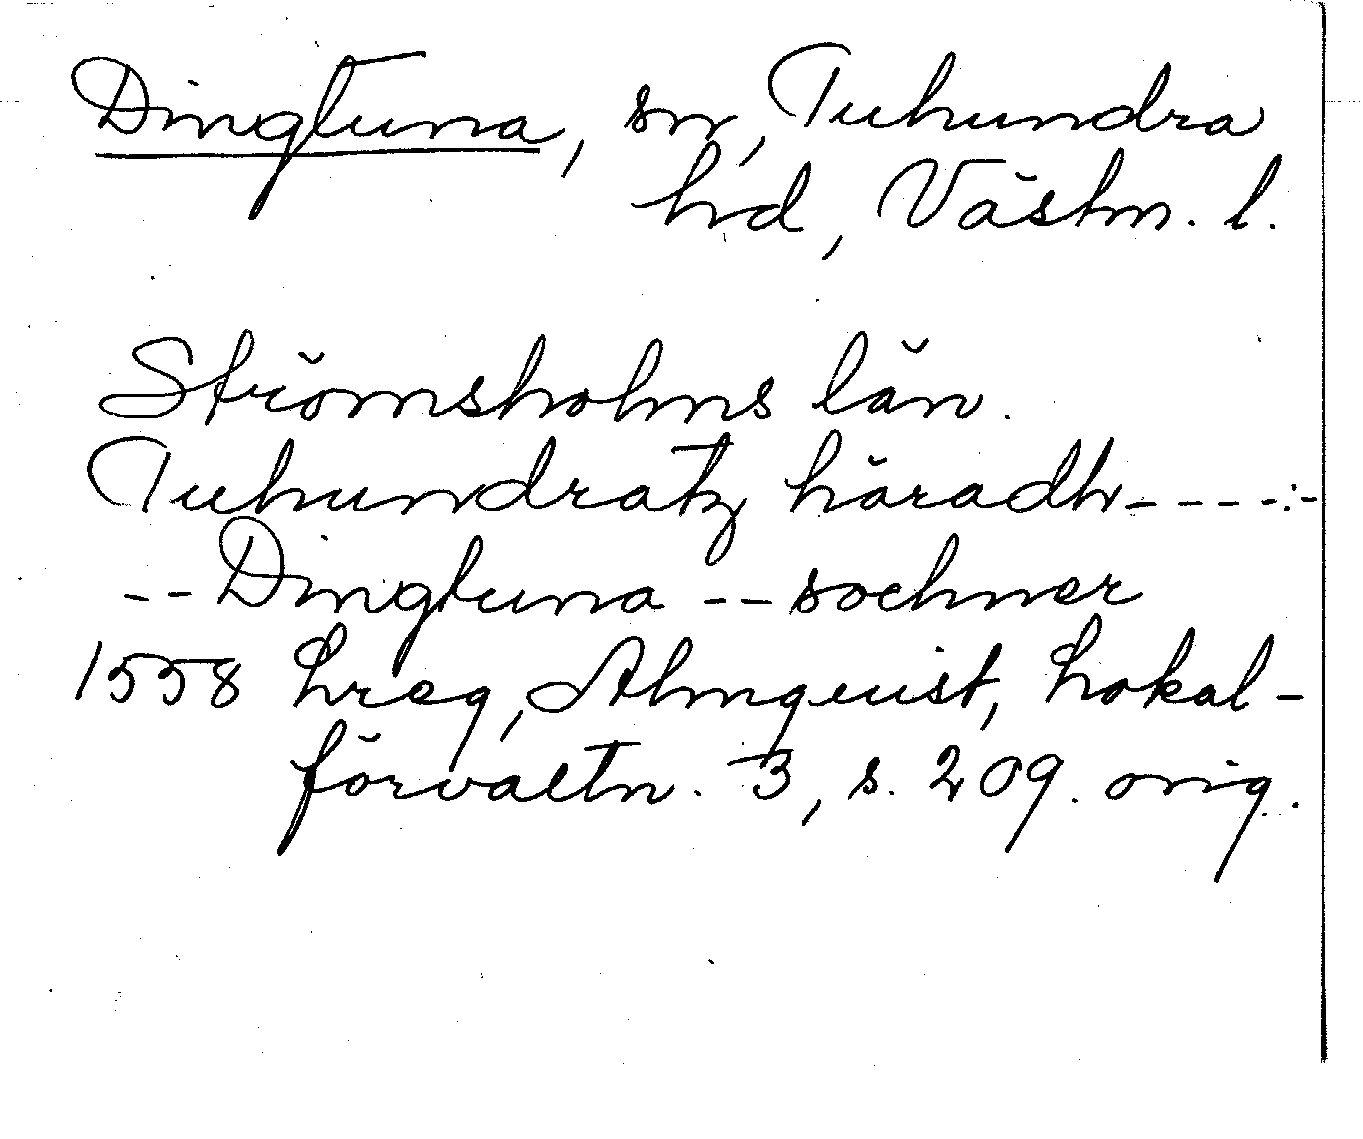 Dingtuna, sn, Tuhundra
hd, Västm. l.
Strömsholms län.
Tuhundratz häradh - - - - : -
- - Dingtuna - - sochner
1558 Lreg, Almquist, Lokal-
förvaltn. 3, s. 209. orig.